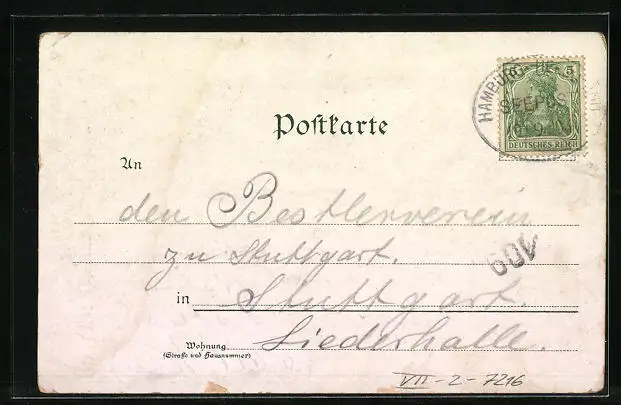 Postkarte
HAMBURG
5
SEEPOS
DEUTSCHES REICH
An
den Bestlerverein
zu Stuttgart.
409
in Stuttgart.
Wohnung Liederhalle.
(Straße und Hausnummer)
VII-2-7216